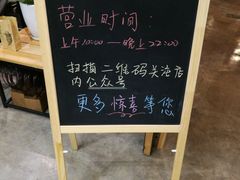 营业时间：
上午10:00—晚上22:00
扫描二维码关注店
内公众号
更多惊喜等您